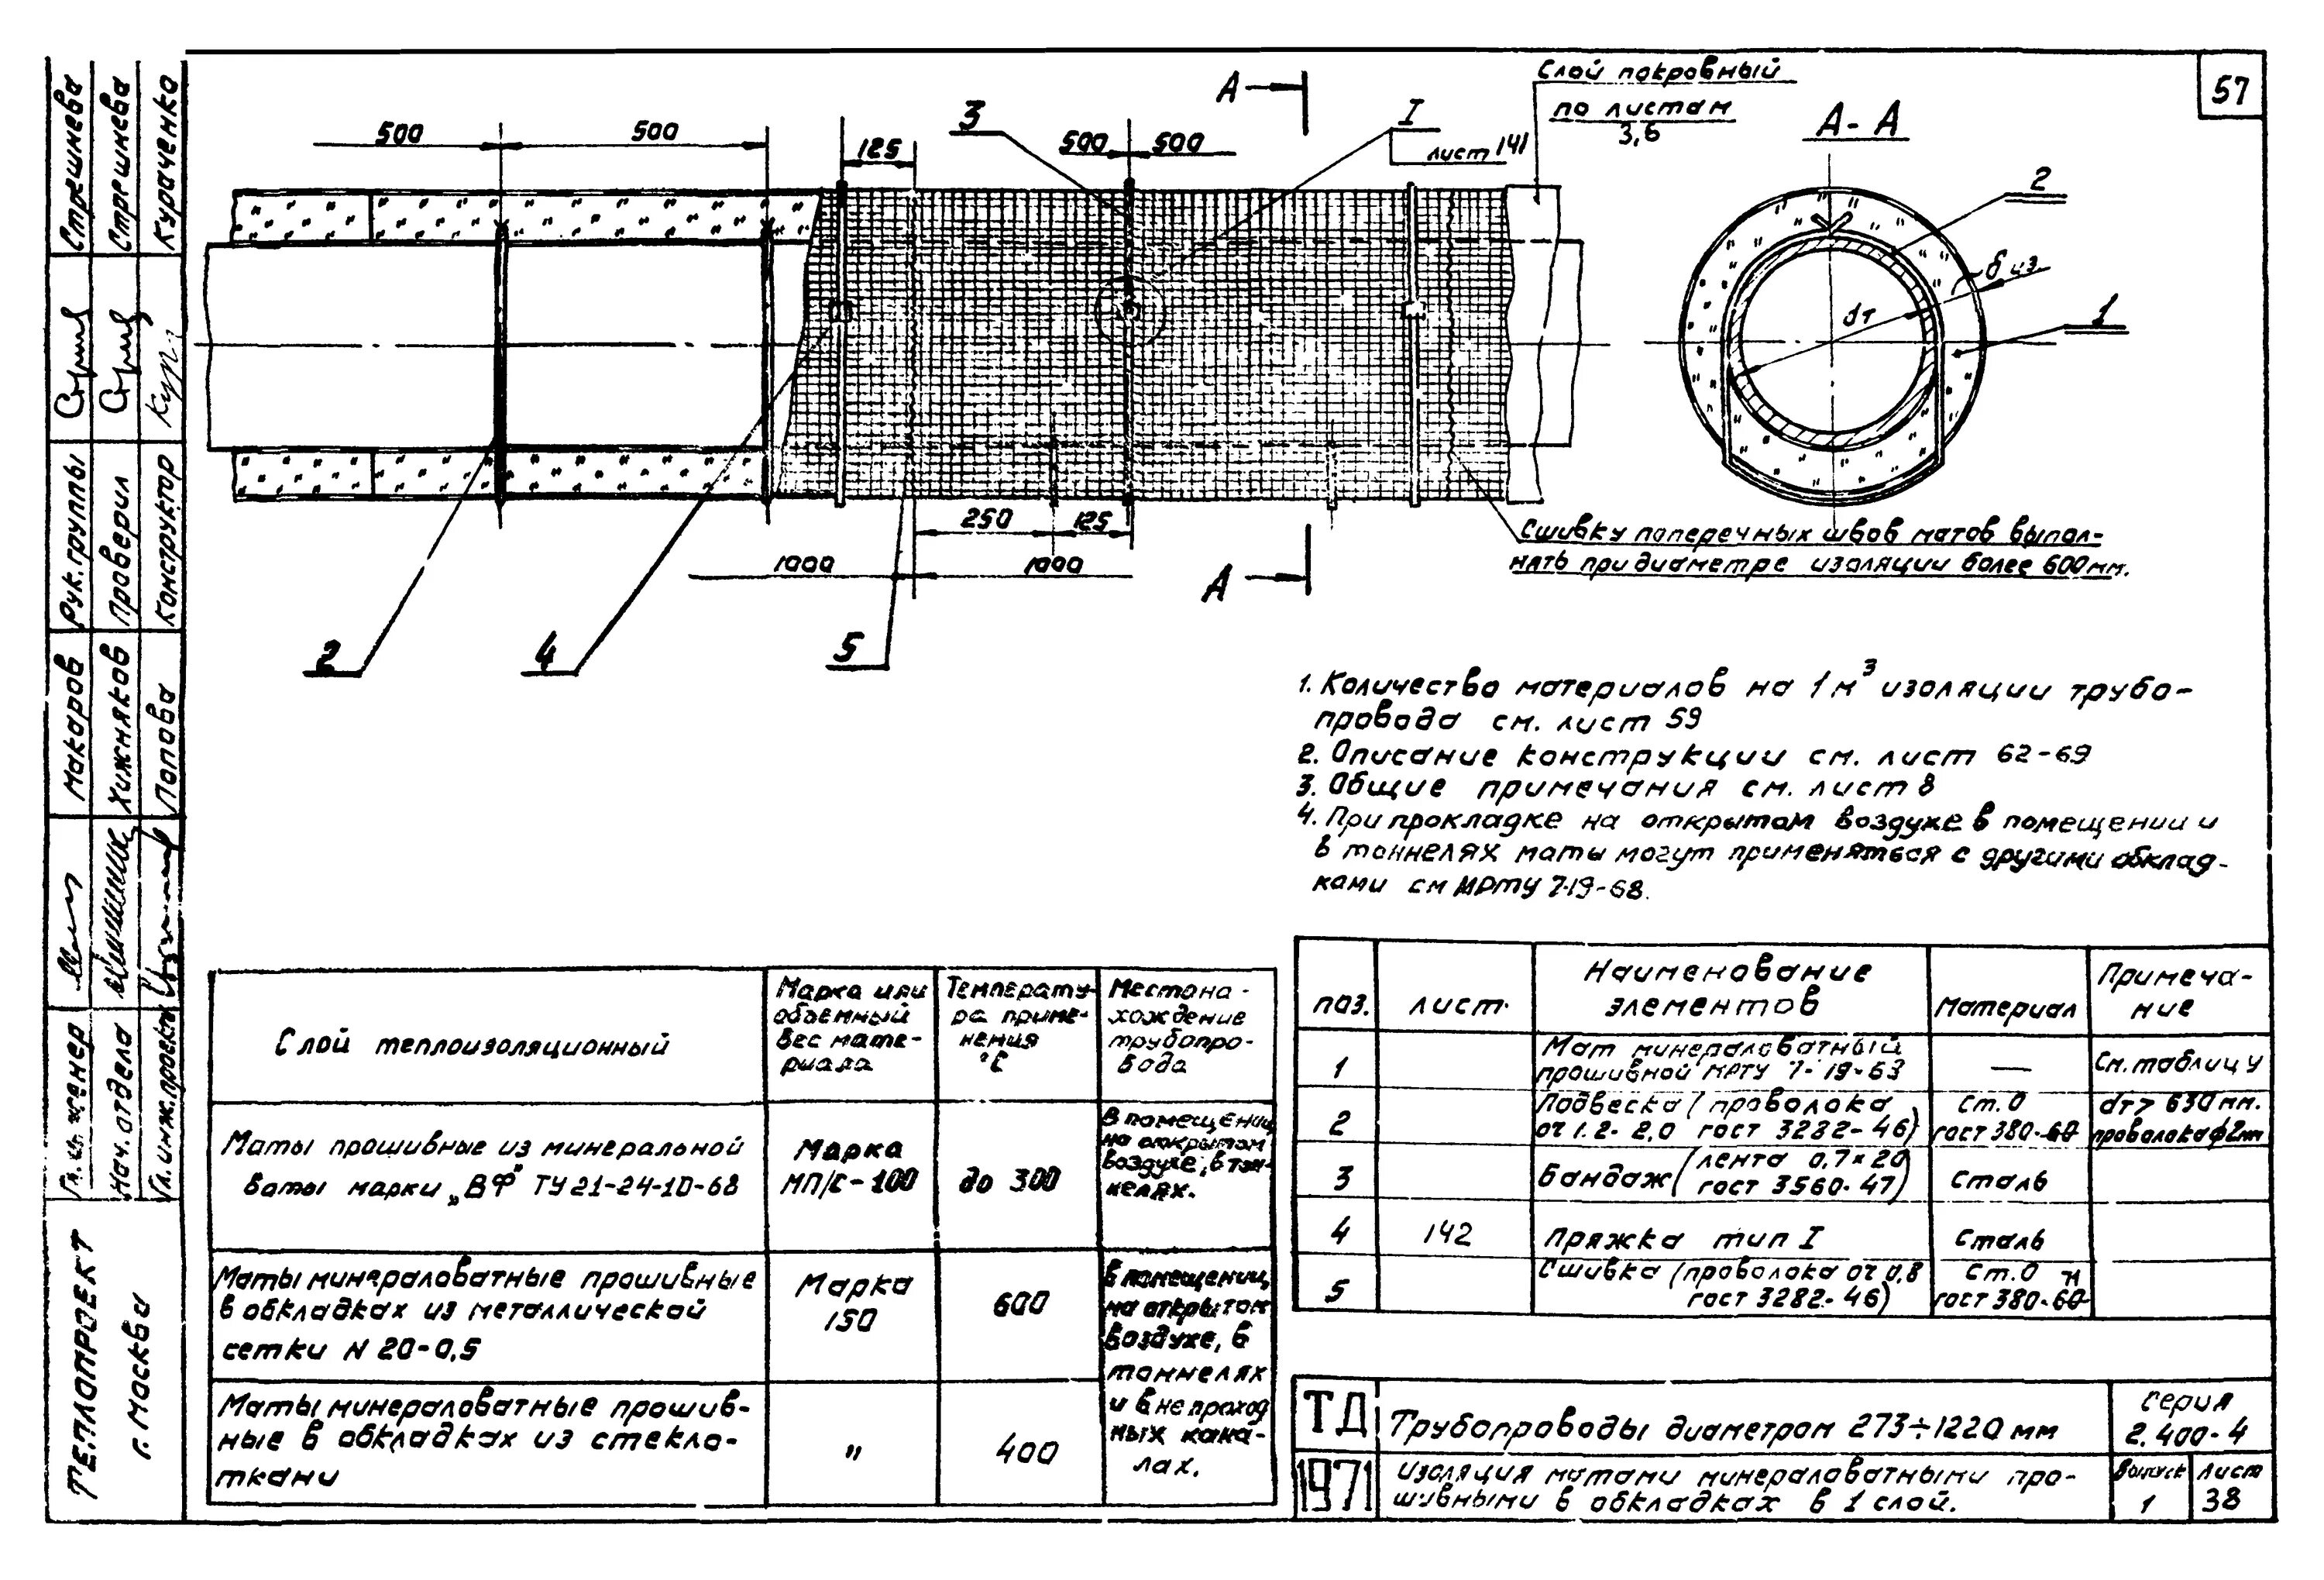 57
500
500
125
3
500
500
I
лист 141
А
Слой покровный
по листам
3,6
А-А
2
δ из.
dт
1
250
125
1000
1000
А
Сшивку поперечных швов матов выпол-
нять при диаметре изоляции более 600мм.
2
4
5
1. Количество материалов на 1м³ изоляции трубо-
провода см. лист 59
2. Описание конструкции см. лист 62-69
3. Общие примечания см. лист 8
4. При прокладке на открытом воздухе в помещении и
в тоннелях маты могут применяться с другими обклад-
ками см МРТУ 7-19-68.
Слой теплоизоляционный
Марка или
объемный
вес мате-
риала
Температу-
ра приме-
нения
°С
Местона-
хождение
трубопро-
вода
Маты прошивные из минеральной
ваты марки „ВФ" ТУ 21-24-10-68
Марка
МП/С-100
до 300
В помещении,
на открытом
воздухе, в тон-
нелях.
Маты минераловатные прошивные
в обкладках из металлической
сетки N 20-0,5
Марка
150
600
В помещении,
на открытом
воздухе, в
тоннелях
и в непроход
ных кана-
лах.
Маты минераловатные прошив-
ные в обкладках из стекло-
ткани
"
400
поз.
лист.
Наименование
элементов
Материал
Примеча-
ние
1
Мат минераловатный
прошивной МРТУ 7-19-63
—
См. таблицу
2
Подвеска (проволока
оч 1.2-2,0 гост 3282-46)
Ст.0
гост 380-60
dт> 630 мм.
проволока ф2мм
3
Бандаж (лента 0,7×20
гост 3560-47)
Сталь
4
142
Пряжка тип I
Сталь
5
Сшивка (проволока оч 0,8
гост 3282-46)
Ст.0
гост 380-60
71
ТД
1971
Трубопроводы диаметром 273÷1220 мм
Изоляция матами минераловатными про-
шивными в обкладках в 1 слой.
Серия
2.400-4
Выпуск
1
Лист
38
Рук. группы
Стрешнева
Проверил
Стрешнева
Конструктор
Кураченко
Гл. инженер
Макаров
Нач. отдела
Хижняков
Гл. инж. проекта
Попова
ТЕПЛОПРОЕКТ
г. Москва